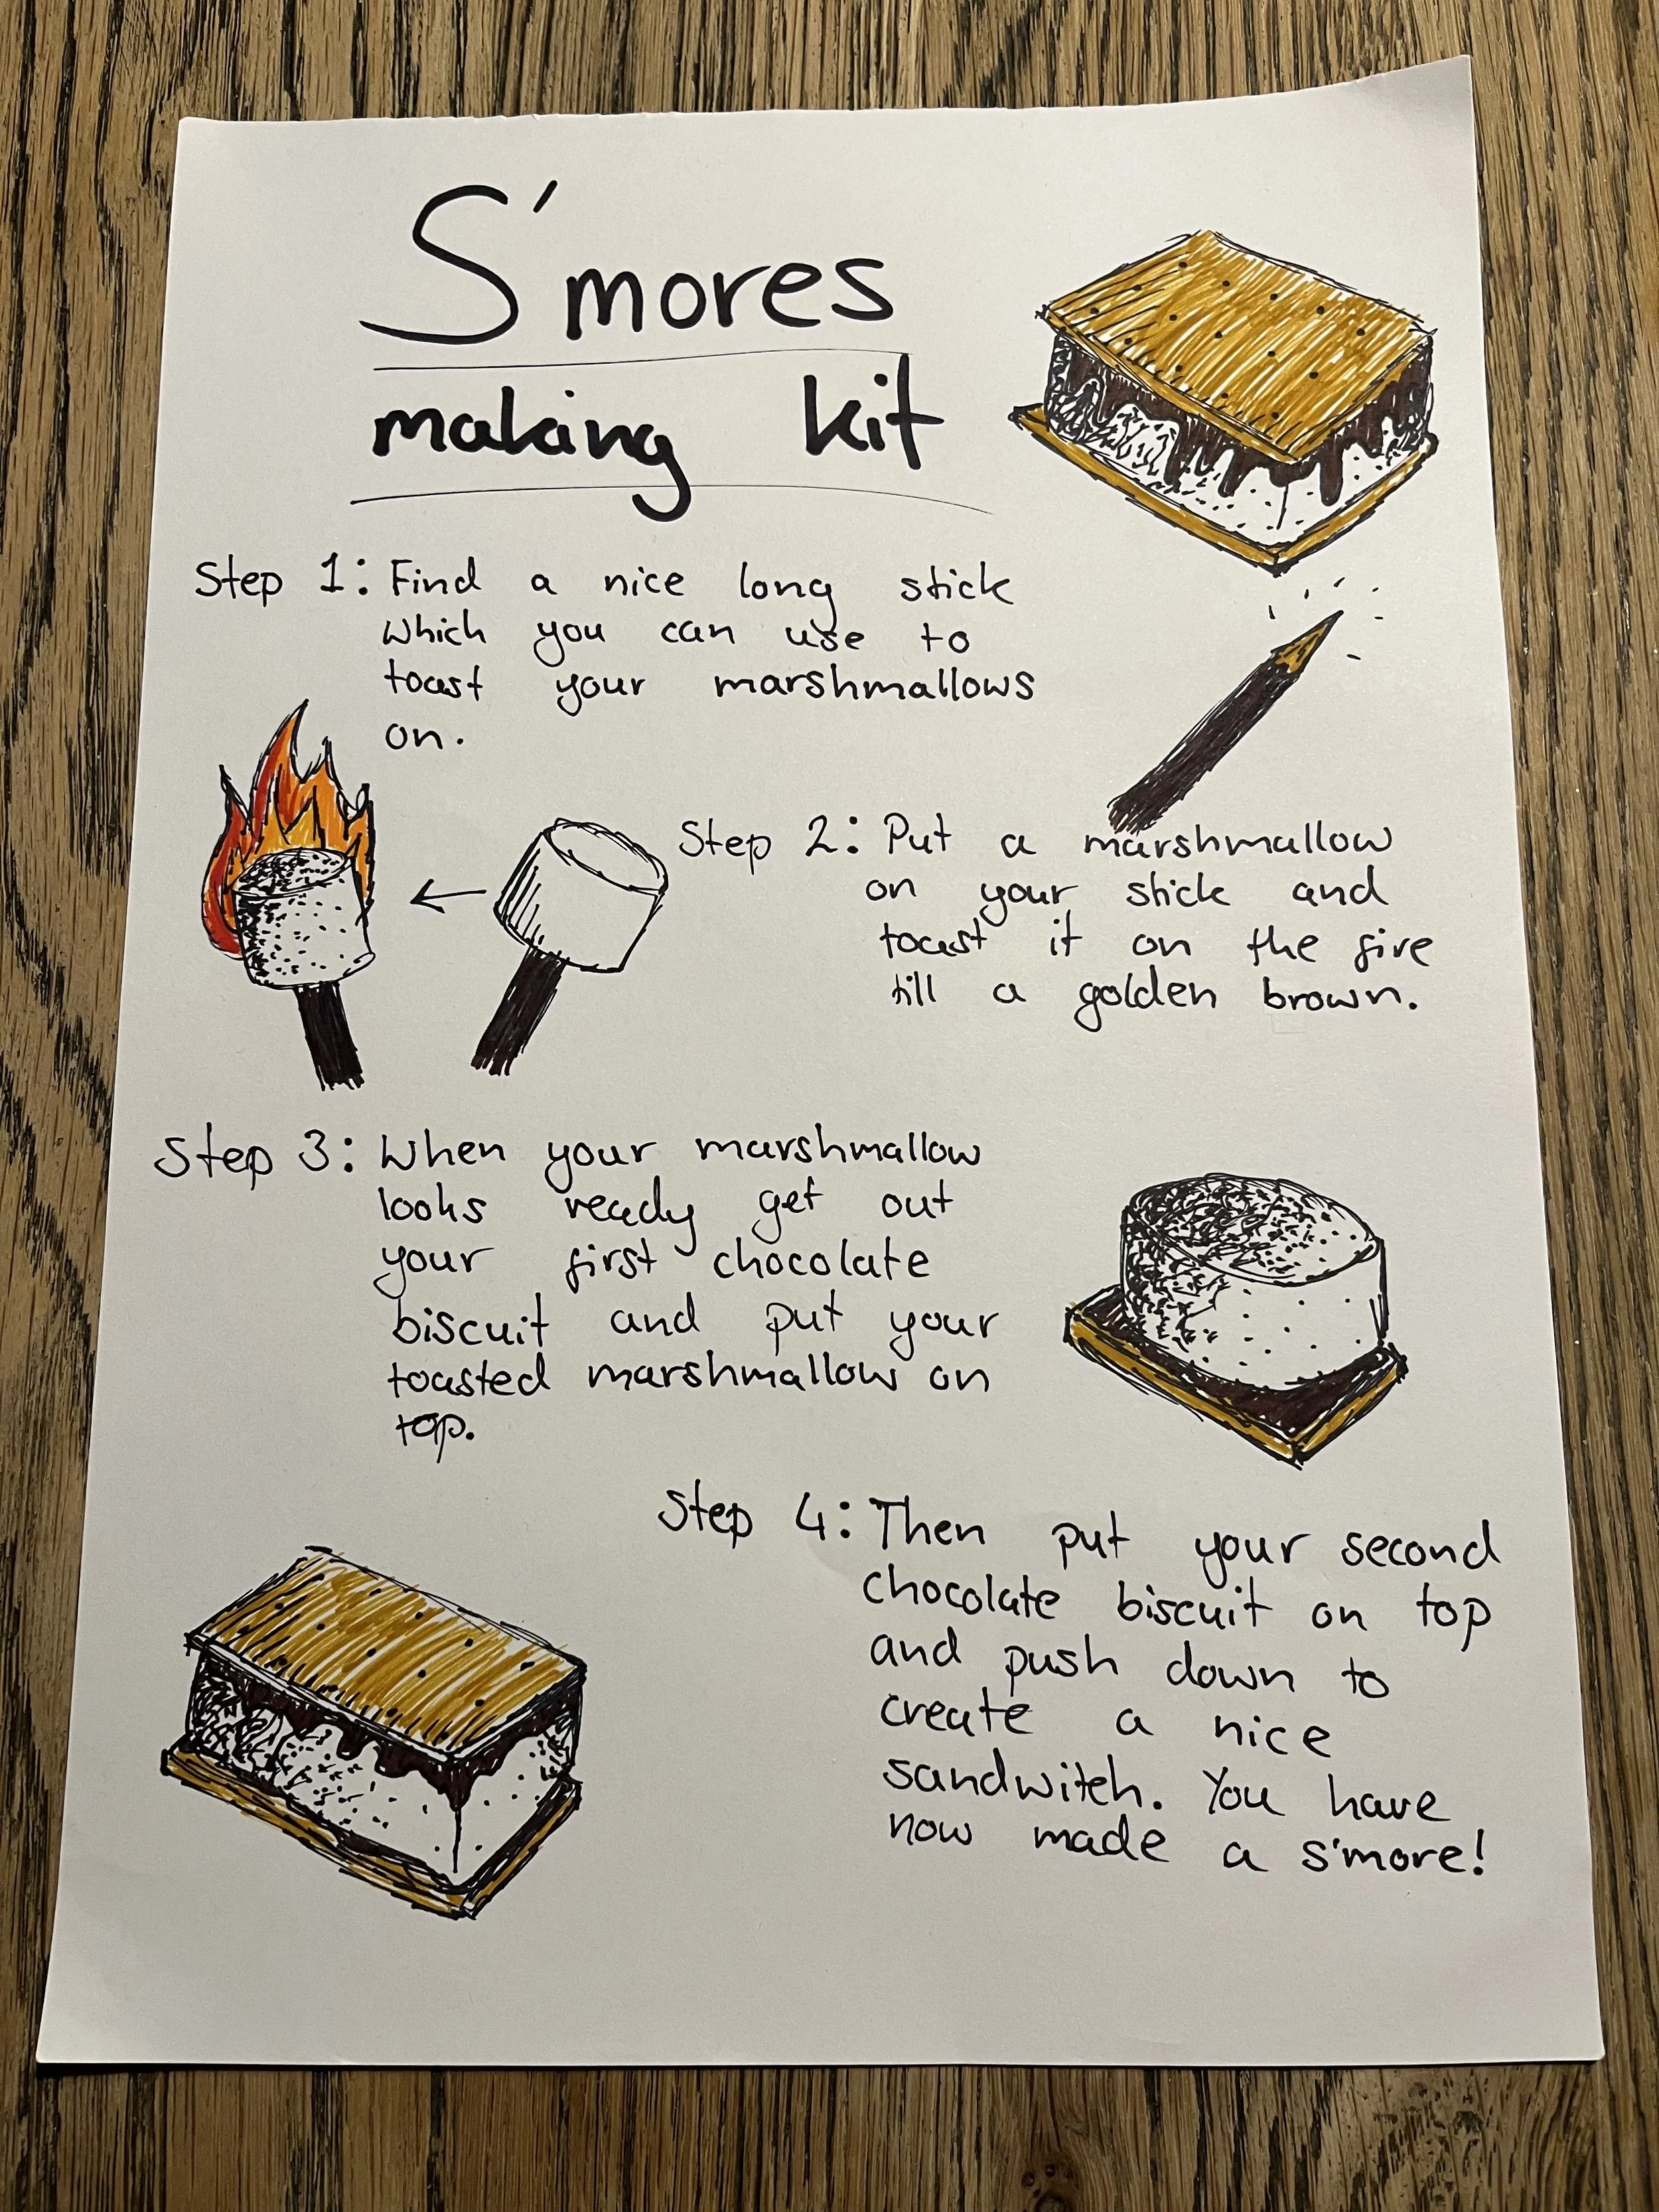 S'mores
making kit
Step 1: Find a nice long stick
which you can use to
toast your marshmallows
on.
Step 2: Put a marshmallow
on your stick and
toast it on the fire
till a golden brown.
Step 3: When your marshmallow
looks ready get out
your first chocolate
biscuit and put your
toasted marshmallow on
top.
Step 4: Then put your second
chocolate biscuit on top
and push down to
create a nice
sandwitch. You have
now made a s'more!